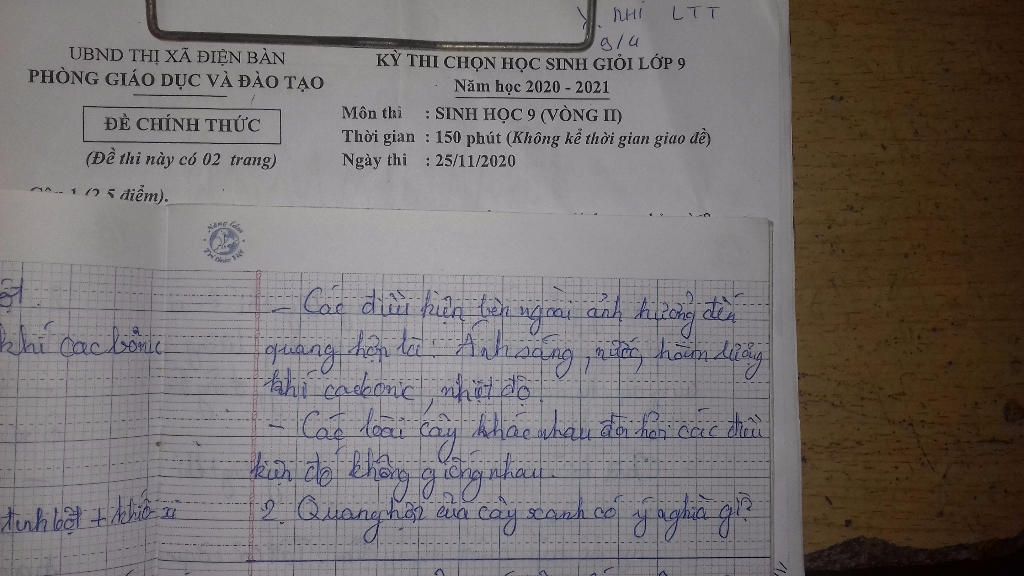 NHI LTT
9/4
UBND THỊ XÃ ĐIỆN BÀN
PHÒNG GIÁO DỤC VÀ ĐÀO TẠO
ĐỀ CHÍNH THỨC
(Đề thi này có 02 trang)
KỲ THI CHỌN HỌC SINH GIỎI LỚP 9
Năm học 2020 - 2021
Môn thi : SINH HỌC 9 (VÒNG II)
Thời gian : 150 phút (Không kể thời gian giao đề)
Ngày thi : 25/11/2020
Câu 1 (2,5 điểm).
khí cacbônic
tinh bột + khí ô xi
- Các điều kiện bên ngoài ảnh hưởng đến
quang hợp là: Ánh sáng, nước, hàm lượng
khí cacbonic, nhiệt độ.
- Các loài cây khác nhau đòi hỏi các điều
kiện đó không giống nhau.
2. Quang hợp của cây xanh có ý nghĩa gì?